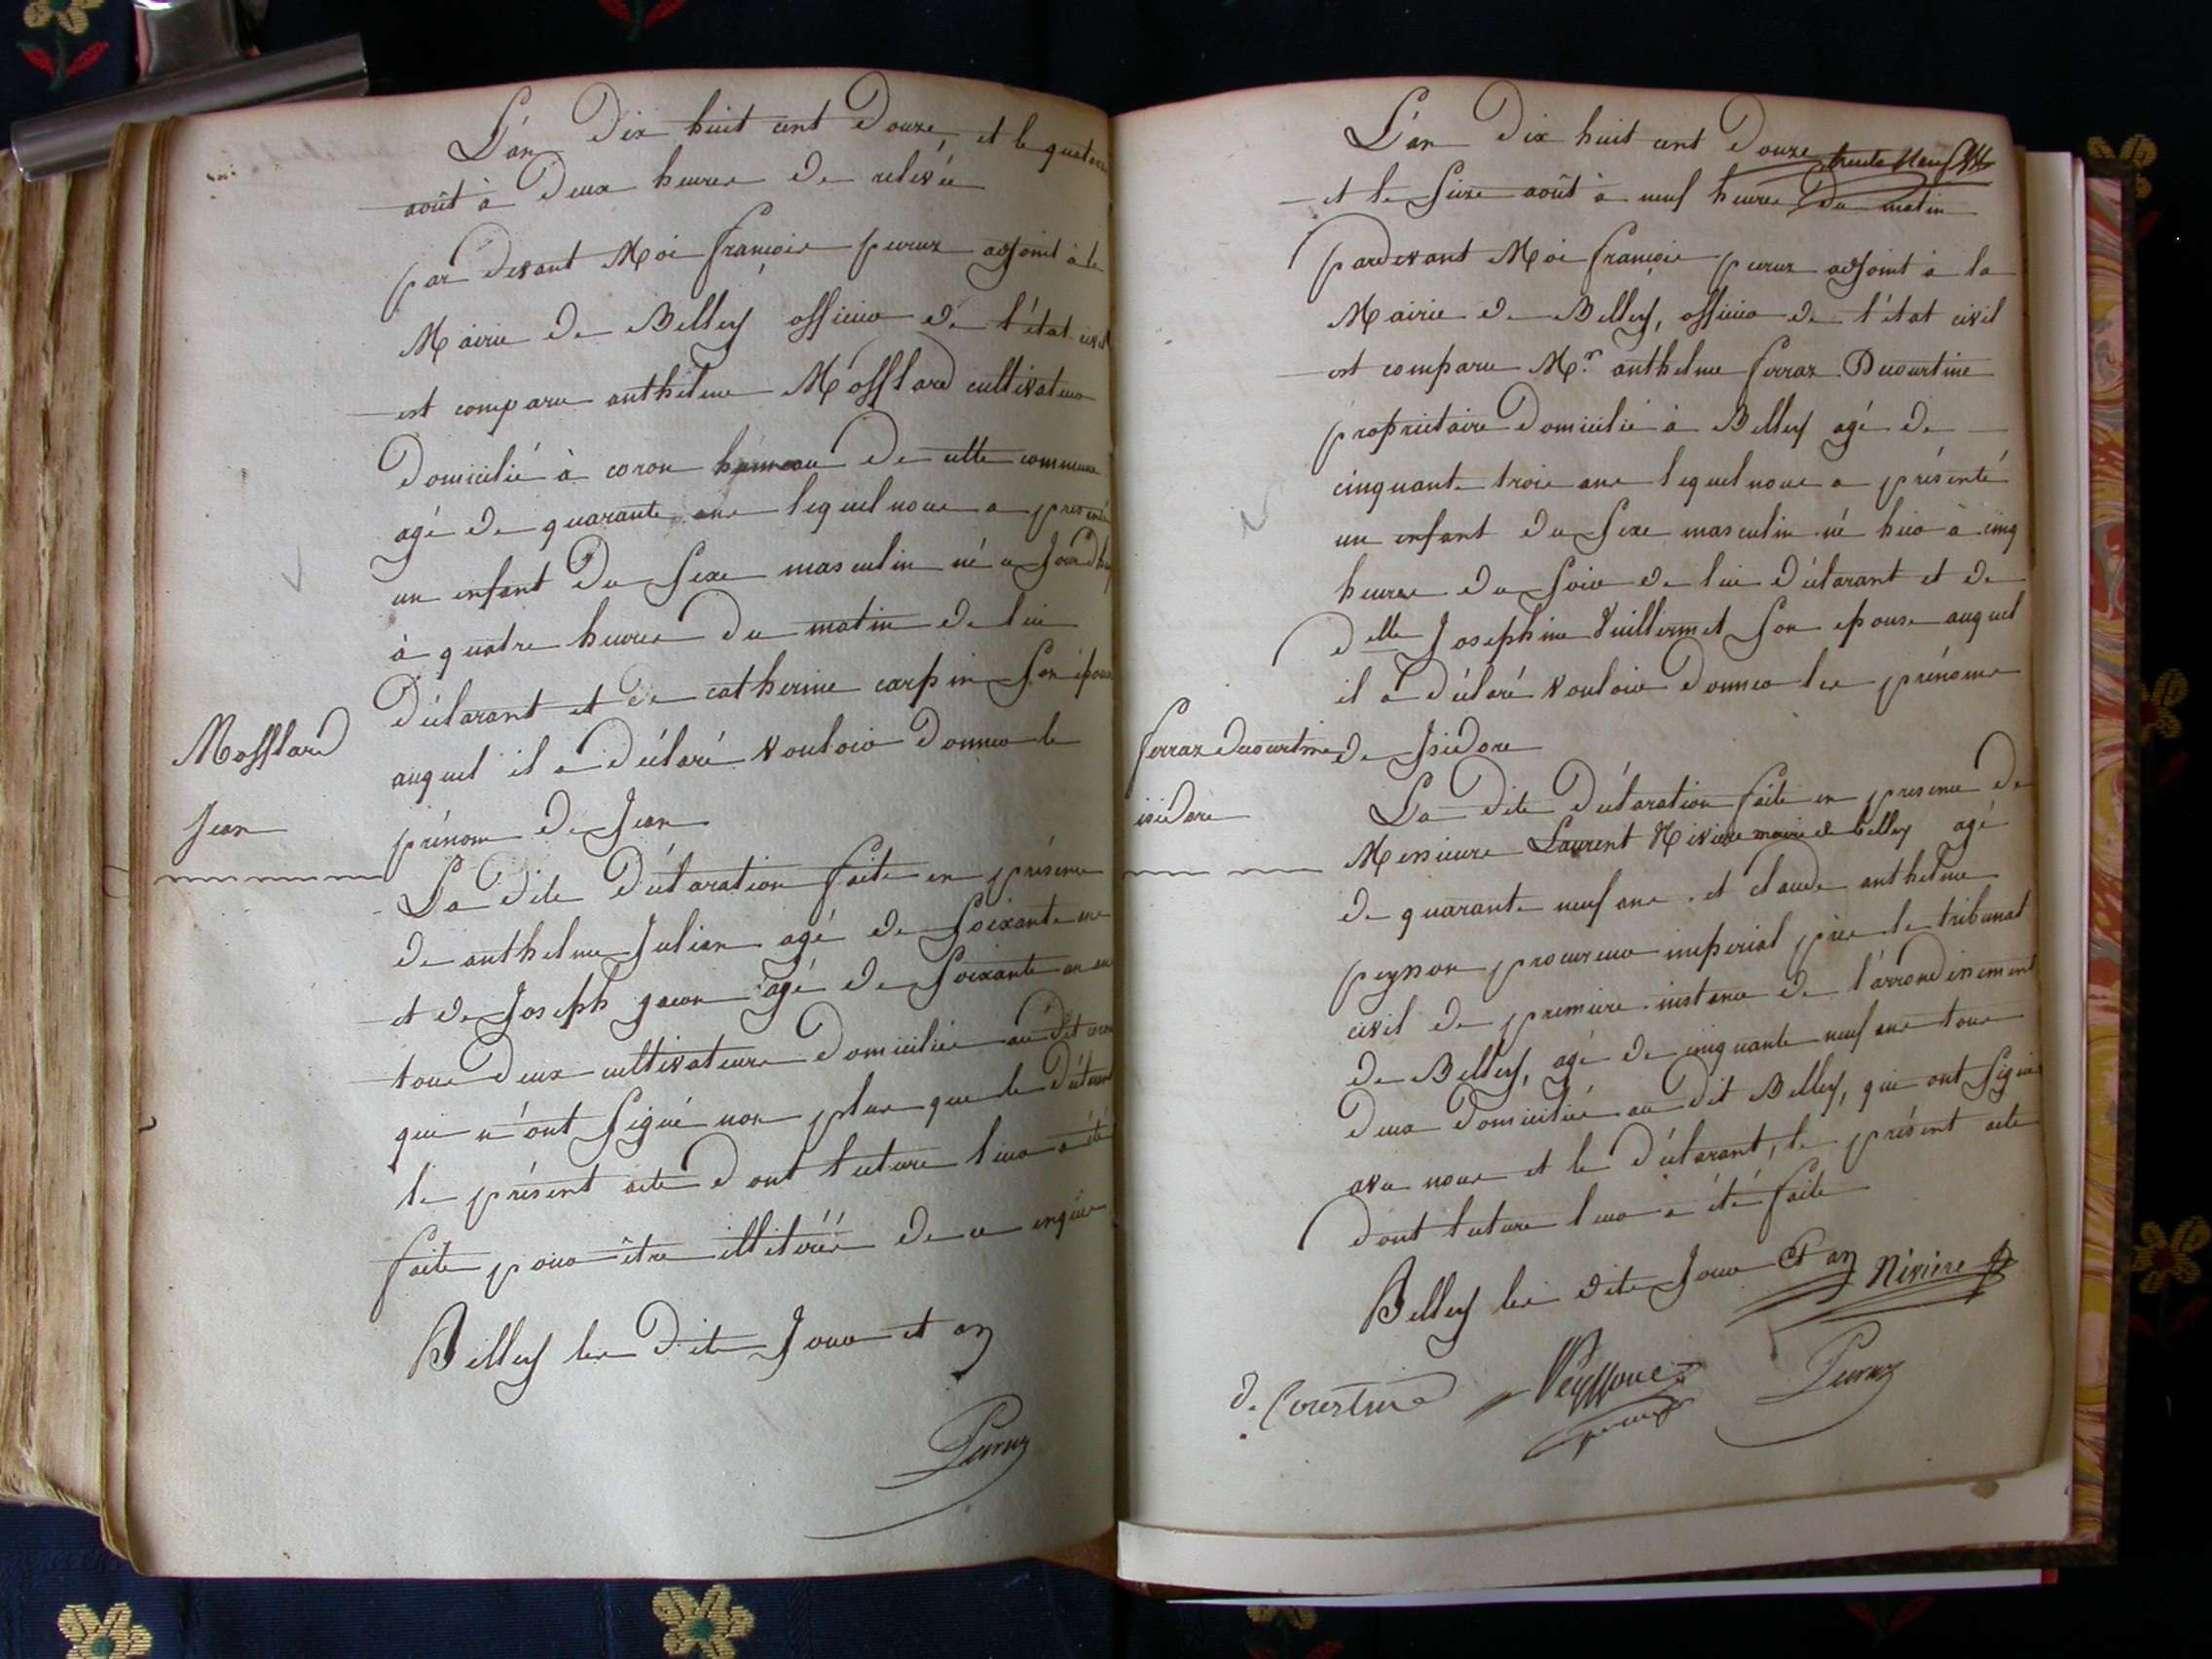 L'an Dix huit cent Douze, et le quatorze
août à Deux heures De relevée
par devant Moi françois peruz adjoint à la
Mairie De Belley officier De l'état civil
est comparu anthelme Mossland cultivateur
Domicilié à coron hameau De cette commune
agé De quarante ans lequel nous a présenté
un enfant Du Sexe masculin né aJourd'hui
à quatre heures Du matin De lui
Déclarant et De catherine carpin Son épouse
auquel il a Déclaré vouloir Donner le
prénom De Jean
Mossland
Jean
La Dite Déclaration faite en présence
De anthelme Julian agé De Soixante ans
et De Joseph jacon agé De Soixante
tous Deux cultivateurs Domiciliés au Dit coron
qui n'ont Signé non plus que le Déclarant
le présent acte Dont lecture leur a été
faite pour être illitérés De ce enquis
Belley les Dits Jour et an
Peruz
L'an Dix huit cent Douze, trente Neuf
et le Seize août à neuf heures Du matin
pardevant Moi françois peruz adjoint à la
Mairie De Belley, officier De l'état civil
est comparu Mr. anthelme ferraz Decourtine
propriétaire Domicilié à Belley agé De
cinquante trois ans lequel nous a présenté
un enfant Du Sexe masculin né hier à cinq
heures Du Soir De lui Déclarant et De
Delle Josephine Vuillermet Son epouse auquel
il a Déclaré vouloir Donner les prénoms
De Isidore
ferraz Decourtine
isidore
La Dite Déclaration faite en presence De
Messieurs Laurent Nivière maire de belley agé
De quarante neuf ans et claude anthelme
peysson procureur imperial près le tribunal
civil De première instance De l'arrondissement
De Belley, agé De cinquante neuf ans tous
Deux Domiciliés au Dit Belley, qui ont Signé
avec nous et le Déclarant, le présent acte
Dont lecture leur a été faite
Belley les Dits Jour Et an Nivière
D. Courtine Peyssone Peruz